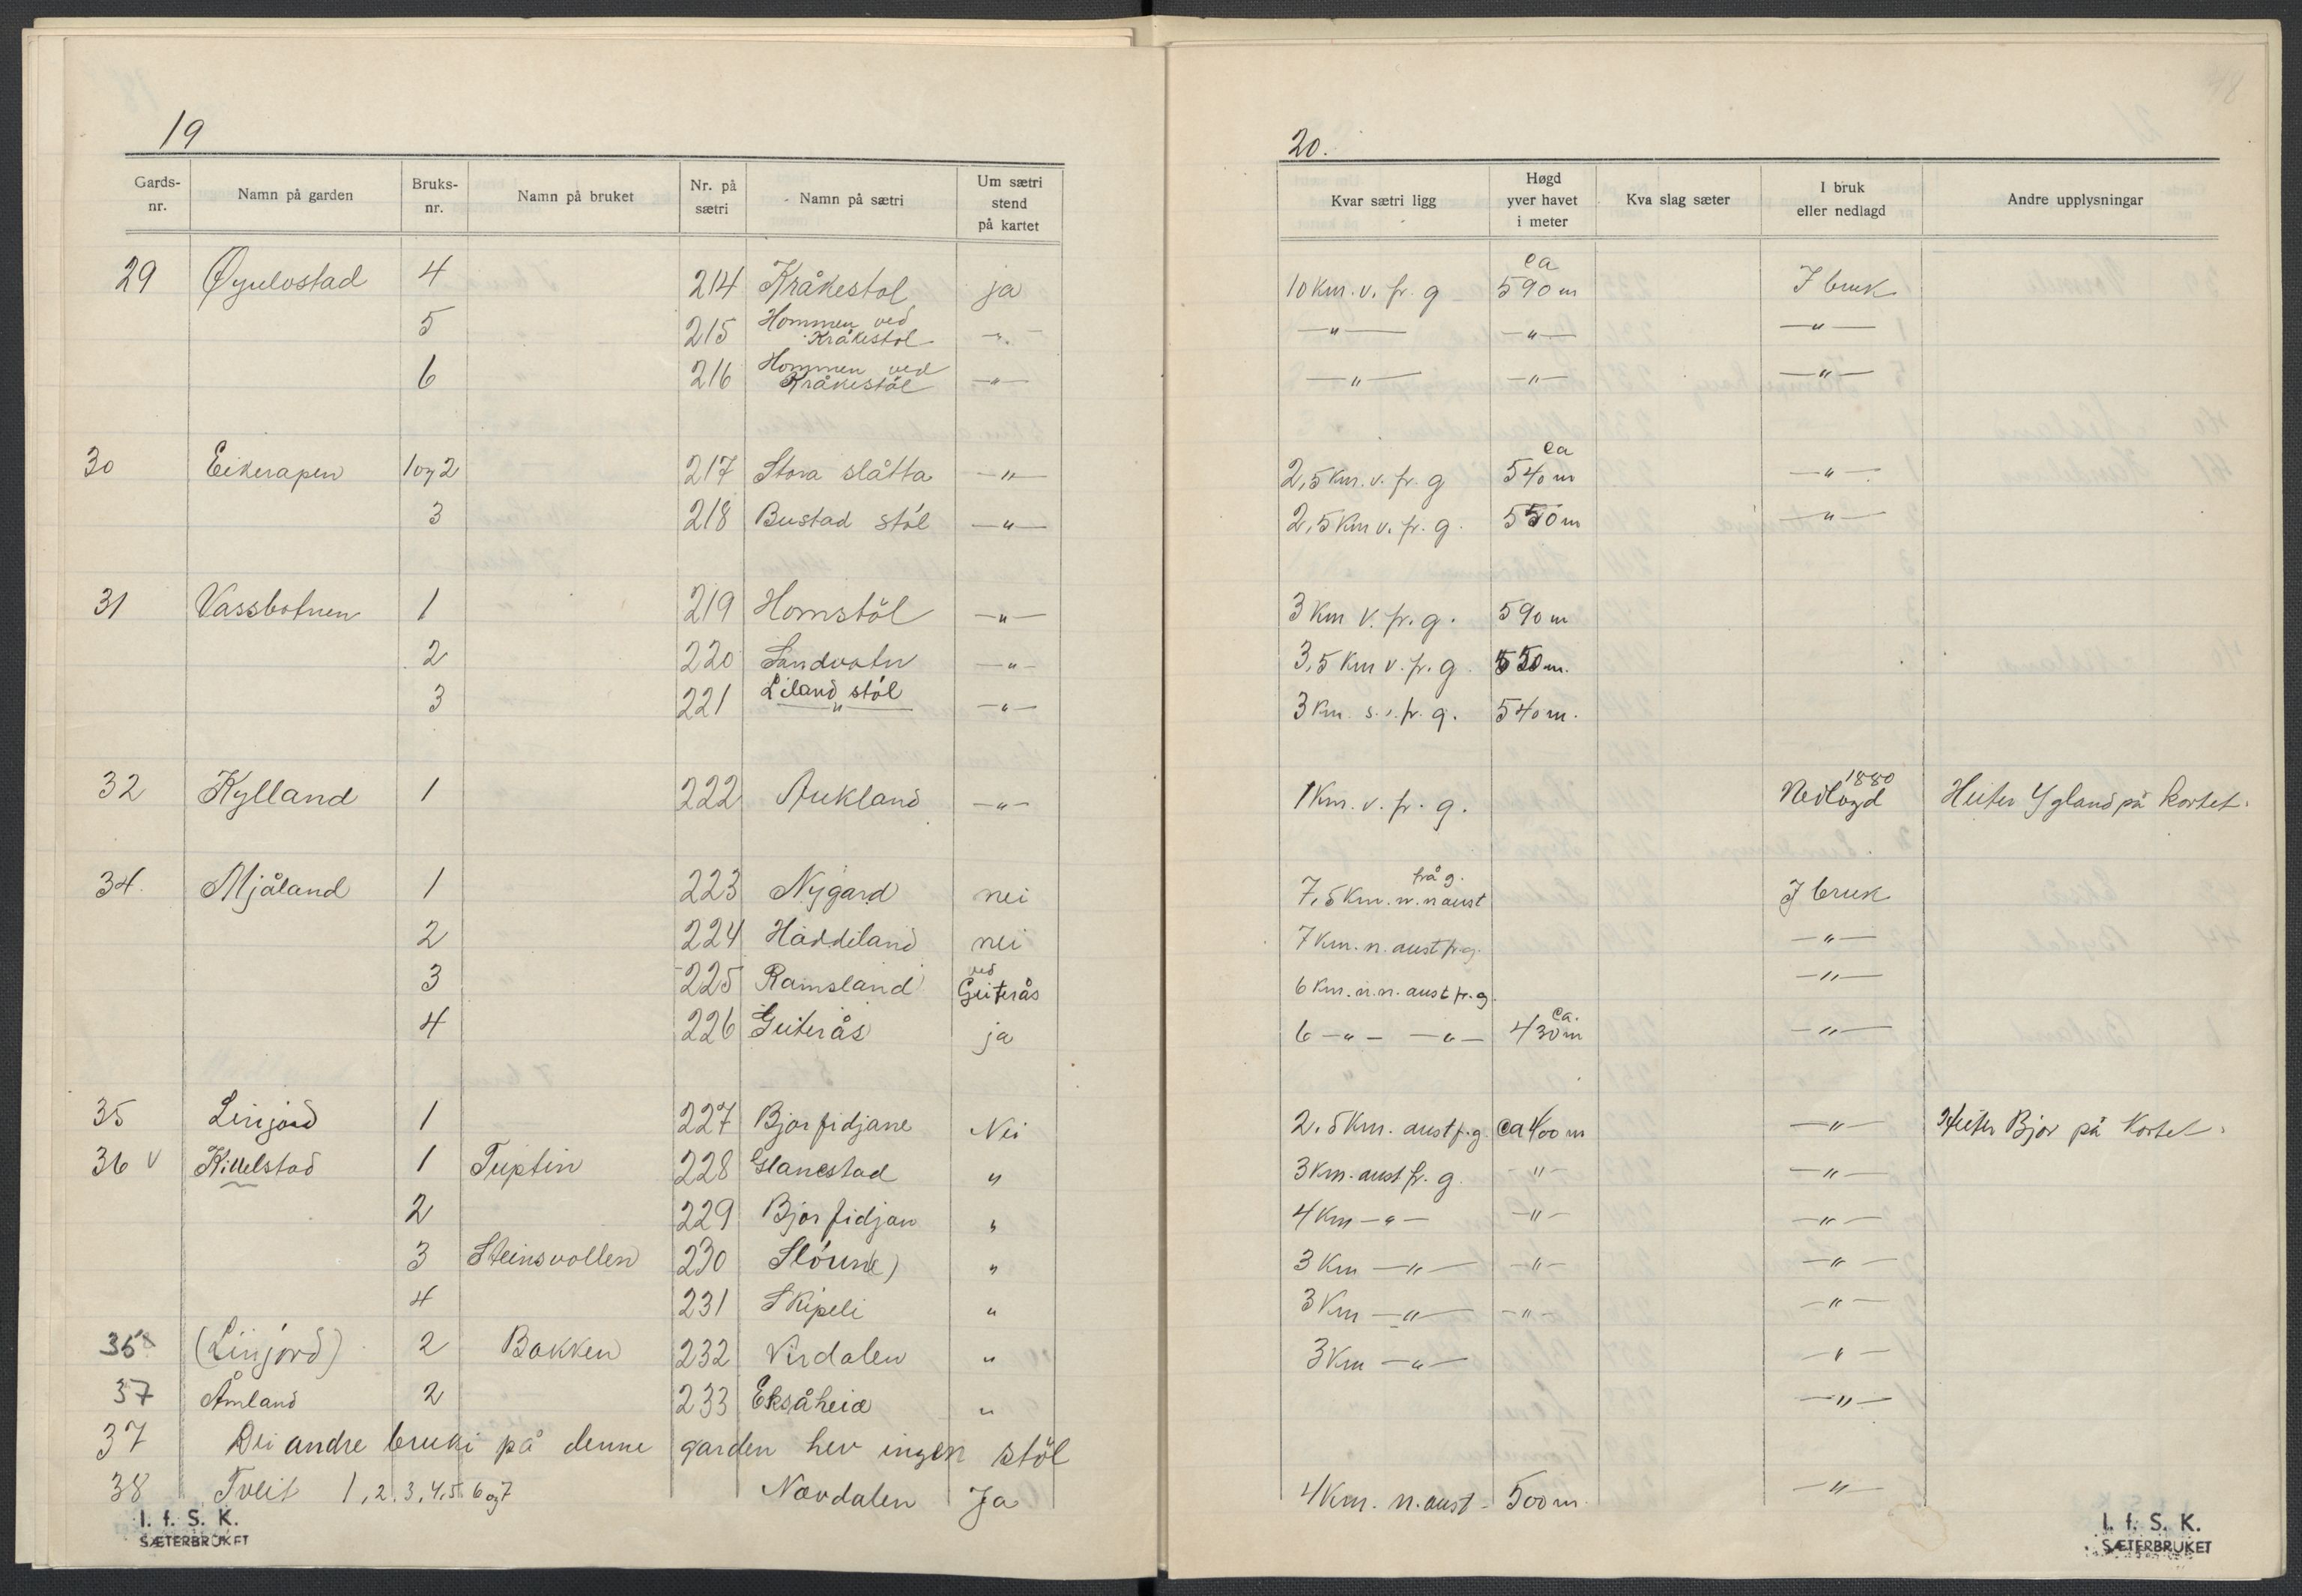 19
Gards-nr. Namn på garden Bruks-nr. Namn på bruket Nr. på sætri Namn på sætri Um sætri stend på kartet
29 Øyulvstad 4 214 Kråkestøl ja
5 215 Hommen ved Kråkestøl - " -
6 216 Hommen ved Kråkestöl - " -
30 Eikerapen 1 og 2 217 Stora slåtta - " -
3 218 Bustad stöl - " -
31 Vassbotnen 1 219 Homstöl - " -
2 220 Sandvatn - " -
3 221 Liland stöl - " -
32 Kylland 1 222 Aukland - " -
34. Mjåland 1 223 Nygard nei
2 224 Haddeland nei
3 225 Ramsland ved Geiterås
4 226 Geiterås ja
35 Linjord 1 227 Bjorfidjane Nei
36 v Killelstad 1 Tuptin 228 Glanestad "
2 229 Bjorfidjan "
3 Steinsvollen 230 "
4 231 Skipeli "
35 (Linjord) 2 Bakken 232 Virdalen "
37 Åmland 2 233 Eksåheia "
37 Dei andre bruki på denne garden hev ingen stöl
38 Tveit 1, 2, 3, 4, 5, 6 og 7 Navdalen Ja
I. f. S. K.
SÆTERBRUKET
20.
Kvar sætri ligg Høgd yver havet i meter Kva slag sæter I bruk eller nedlagd Andre upplysningar
10 Km. v. fr. g ca 590 m I bruk
- " - - " - - " -
- " - - " - - " -
2,5 Km. v. fr. g ca 540 m - " -
2,5 Km v. fr. g. 550 m - " -
3 Km v. fr. g. 590 m
3,5 Km v. fr. g. 550 m.
3 Km s. v. fr. g. 540 m.
1 Km. v. fr. g. Nedlagd 1880 Heiter Ygland på kortet.
7,5 Km. n. n aust frå g. I bruk
7 Km. n. aust fr. g. - " -
6 Km. n. n. aust fr. g. - " -
6 - " - - " - ca. 430 m - " -
2,5 Km. aust fr. g. ca 400 m - " - Heiter Bjor på Kortet.
3 Km. aust fr. g. - " - - " -
4 Km - " - - " - - " -
3 Km - " - - " - - " -
3 Km - " - - " - - " -
3 Km - " - - " -
- " -
4 Km. n. aust - 500 m. - " -
I. f. S. K.
SÆTERBRUKET